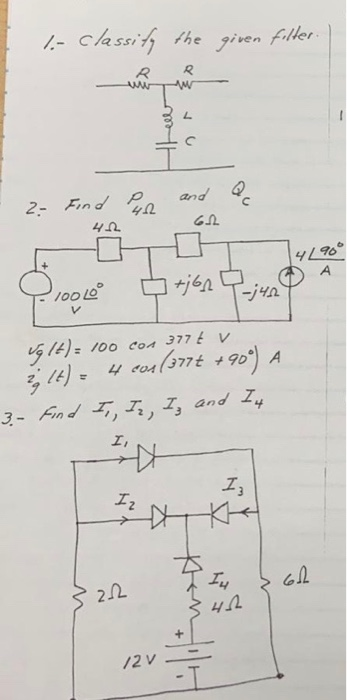 1.- Classify the given filter.
R R
L
C
2.- Find P4Ω and Qc
4Ω 6Ω
+ 4∠90°
A
- 100∠0° +j6Ω -j4Ω
V
vg(t) = 100 cos 377t V
ig(t) = 4 cos(377t +90°) A
3.- Find I1, I2, I3 and I4
I1
I2 I3
I4
2Ω 4Ω 6Ω
+
12V
-